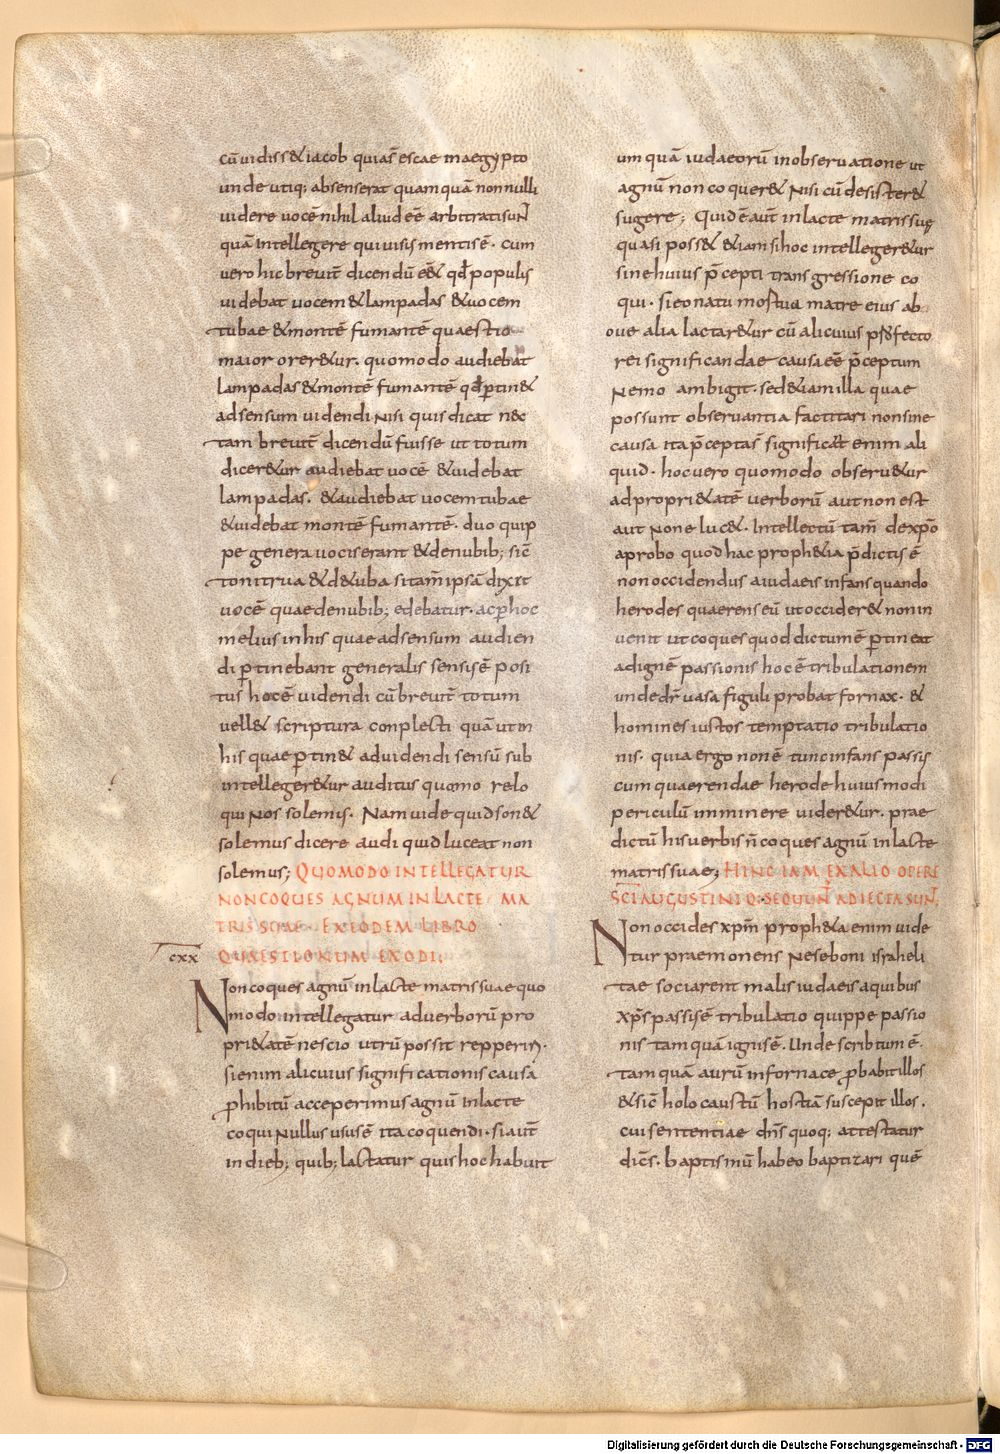 cū uidiss& iacob quia s̄ escae in aegypto
unde utiq; absens erat quam quā nonnulli
uidere uocē nihil aliud eē arbitrati suN̄
quā intellegere qui uisis mentis ē. cum
uero hic breuit̄ dicendū eēt qd̄ populus
uidebat uocem & lampadas & uocem
tubae & montē fumantē quaestio
maior orer&ur. quomodo audiebat
lampadas & montē fumantē qd̄ p̱tin&
ad sensum uidendi Nisi quis dicat nec
tam breuit̄ dicendū fuisse ut totum
dicer&ur audiebat uocē & uidebat
lampadas. & audiebat uocem tubae
& uidebat montē fumantē. duo quip
pe genera uocis erant & de nubib; sic̄
tonitrua & de tuba si tam̄ ipsā dixit
uocē quae de nubib; edebatur. ac p̱ hoc
melius in his quae ad sensum audien
di p̱tinebant generalis sensis ē posi
tus hoc ē uidendi cū breuit̄ totum
uell& scriptura conplecti quā ut in
his quae p̱tin& ad uidendi sensū sub
intelleger&ur auditus quomo relo
qui Nos solemus. Nam uide quid son&
solemus dicere audi quid luceat non
solemus; QUOMODO INTELLEGATUR
NON COQUES AGNUM IN LACTE MA
TRIS SUAE EX EODEM LIBRO
cxx QUAESTIONUM EXODI;
Non coques agnū in lacte matris suae quo
modo intellegatur ad uerborū pro
pri&atē nescio utrū possit repperiri.
si enim alicuius significationis causa
p̱hibitū acceperimus agnū in lacte
coqui Nullus usus ē ita coquendi. si aut̄
in dieb; quib; lactatur quis hoc habuit
um quā iudaeorū in obseruatione ut
agnū non coquer& Nisi cū desister&
sugere; Quid ē aut̄ in lacte matris suę
quasi poss& &iam si hoc intelleger&ur
sine huius p̄cepti transgressione co
qui. si eo nato mortua matre eius ab
oue alia lactar&ur cū alicuius p̱fecto
rei significandae causa eē p̄ceptum
Nemo ambigit. sed &iam illa quae
possunt obseruantia factitari non sine
causa ita p̄cepta s̄ significat enim ali
quid. hoc uero quomodo obseru&ur
ad propri&atē uerborū aut non est
aut None luc&. Intellectū tam̄ de xp̄o
aprobo quod hac proph&ia p̄dictis ē
non occidendus a iudaeis infans quando
herodes quaerens eū ut occider& non in
uenit ut coques quod dictum ē p̱tineat
ad ignē passionis hoc ē tribulationem
unde dr̄ uasa figuli probat fornax. &
homines iustos temptatio tribulatio
nis. quia ergo non ē tunc infans passis
cum quaerendae herode huiusmodi
periculū imminere uider&ur. prae
dictū his uerbis n̄ coques agnū in lacte
matris suae; HINC IAM EX ALIO OPERE
SC̄I AUGUSTINI Q. SEQUUN̄ ADIECTA SUN̄.
Non occides xp̄m proph&ia enim uide
tur praemonens Ne se boni israheli
tae sociarent malis iudaeis a quibus
xp̄s passis ē tribulatio quippe passio
nis tam quā ignis ē. Unde scribtum ē.
tam quā aurū in fornace p̱babit illos
& sic̄ holocaustū hostiā suscepit illos.
cui sententiae dn̄s quoq; attestatur
dic̄s. baptismū habeo baptizari quē
Digitalisierung gefördert durch die Deutsche Forschungsgemeinschaft - DFG